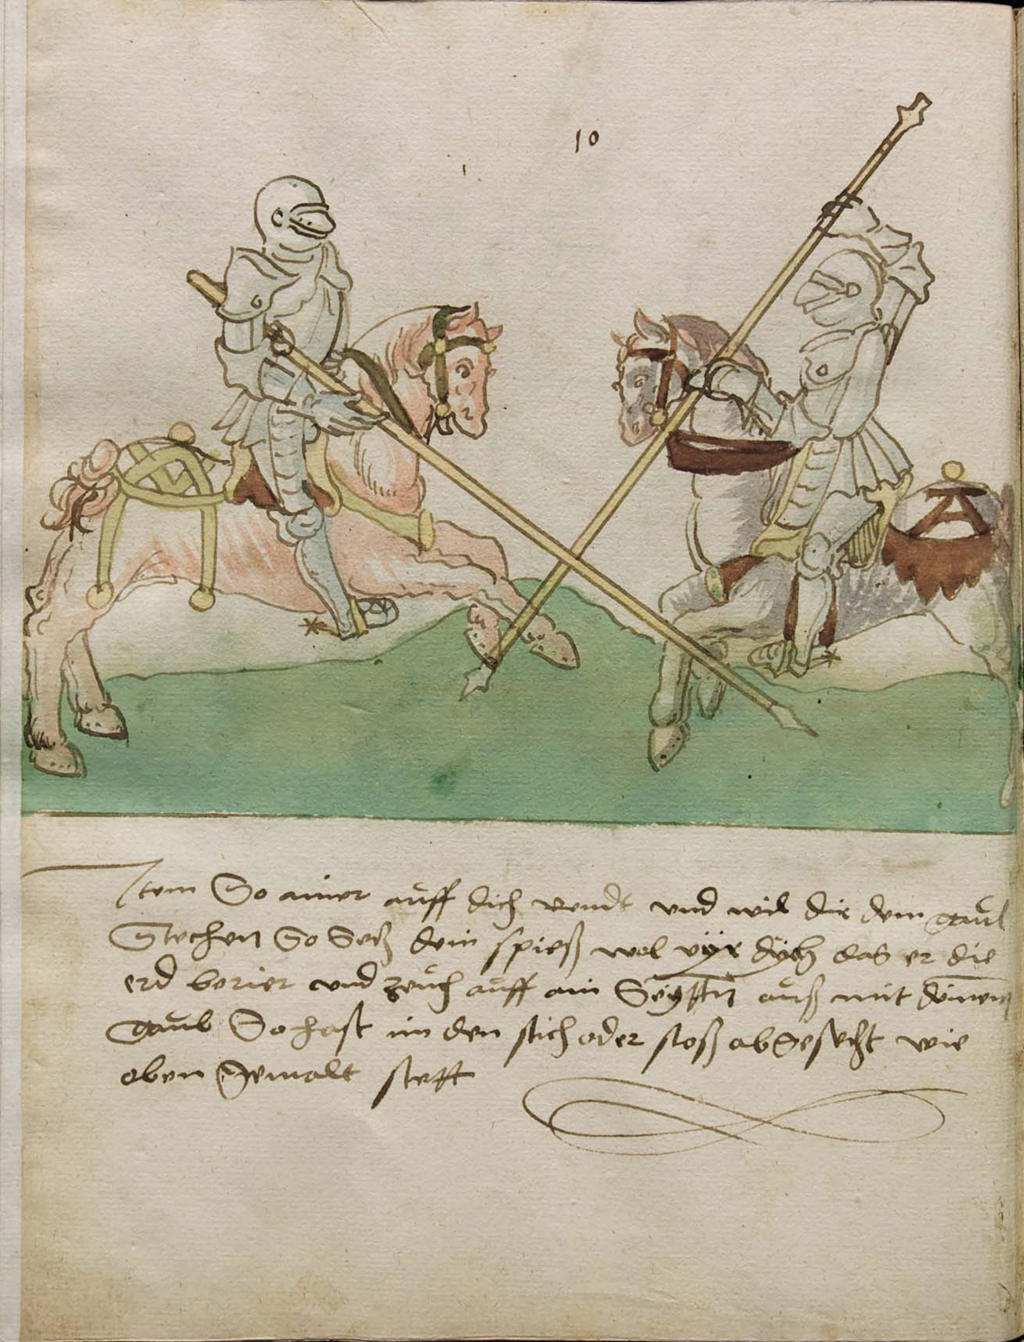 10
Item So ainer auff dich rendt vnd wil dir dein gaul
Stechen So Setz dein spiess wol vür dich das er die
erd berier vnd zeuch auff ain Seyttn auss mit deinem
gaul So hast im den stich oder stoss abgesetzt wie
oben gemalt stett